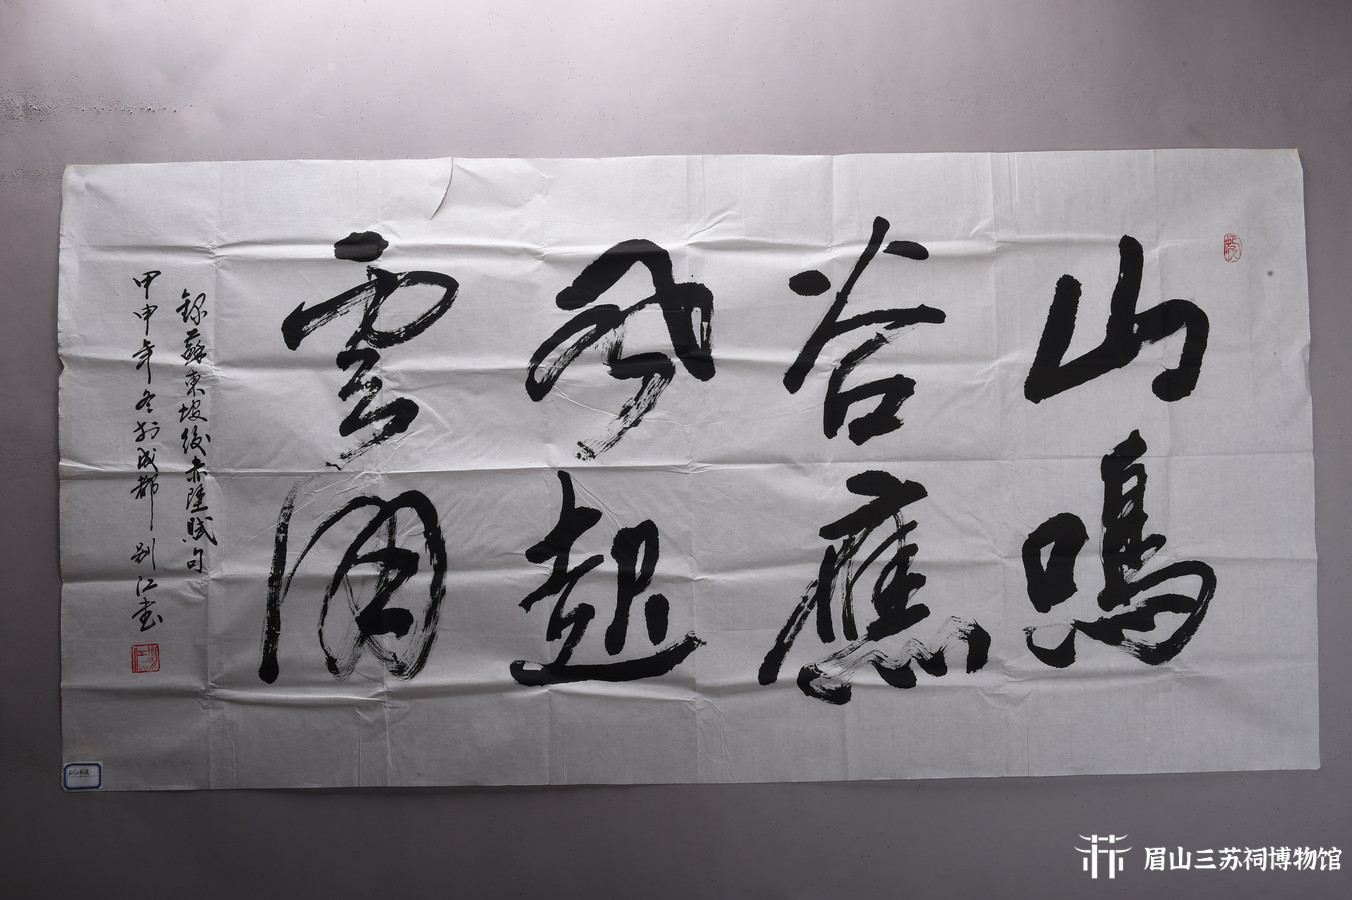 山鳴
谷應
風起
雲涌
錄蘇東坡後赤壁賦句
甲申年冬於成都 别江書
眉山三苏祠博物馆